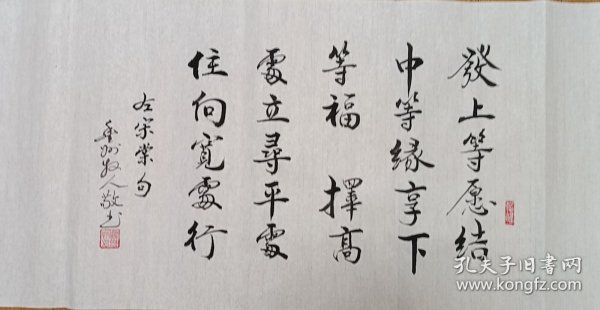 發上等愿結
中等緣享下
等福 擇高
處立尋平處
住向寬處行
左宗棠句
牧人敬书
孔夫子旧书网
www.kongfz.com